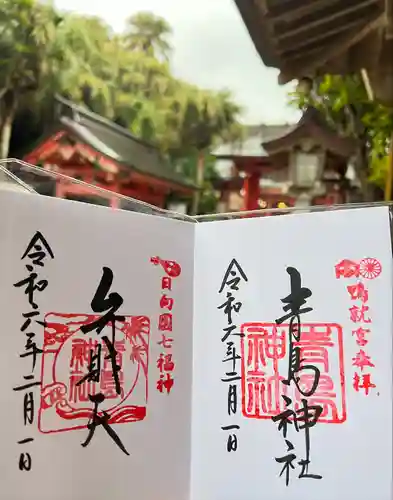 鴨就宮奉拝
青島神社
青島
神社
令和六年二月一日
日向国七福神
弁財天
青島
神社
令和六年二月一日